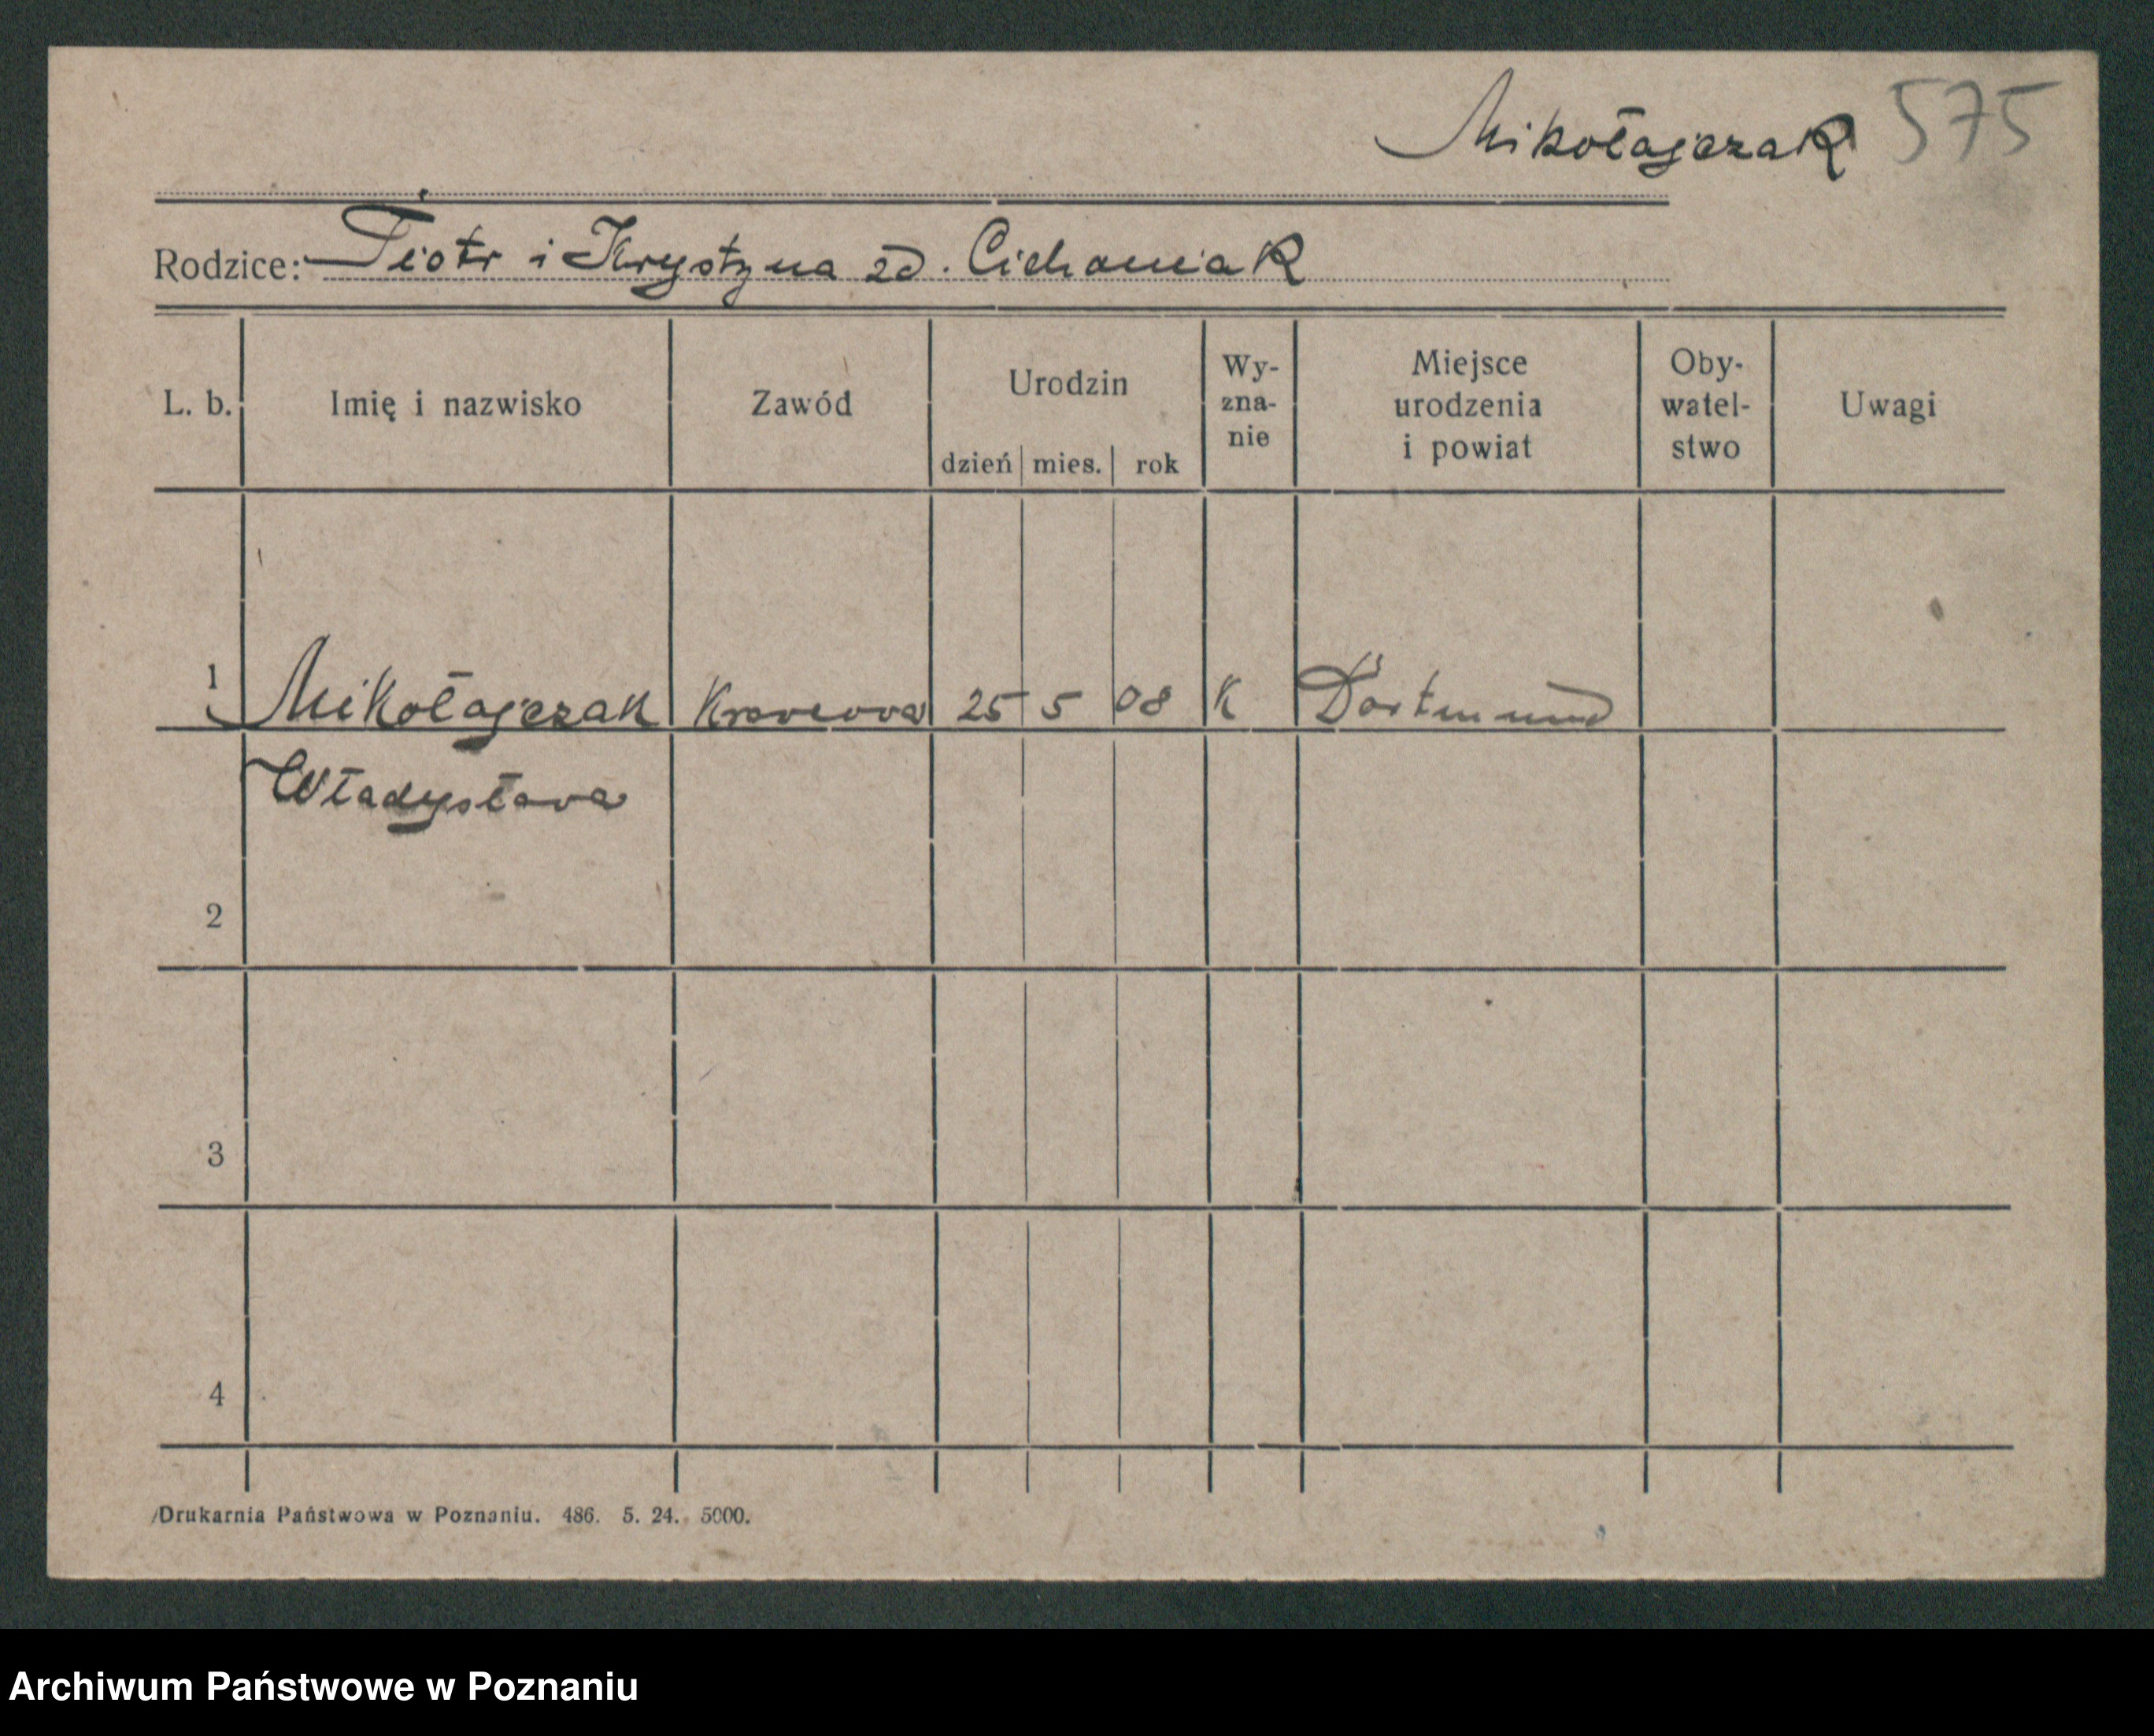 Mikołajczak 575
Rodzice: Piotr i Krystyna zd. Cichoniak
L. b. Imię i nazwisko Zawód Urodzin dzień mies. rok Wy-zna-nie Miejsce urodzenia i powiat Oby-watel-stwo Uwagi
1 Mikołajczak Krawcowa 25 5 08 K Dortmund
Władysława
2
3
4
Drukarnia Państwowa w Poznaniu. 486. 5. 24. 5000.
Archiwum Państwowe w Poznaniu